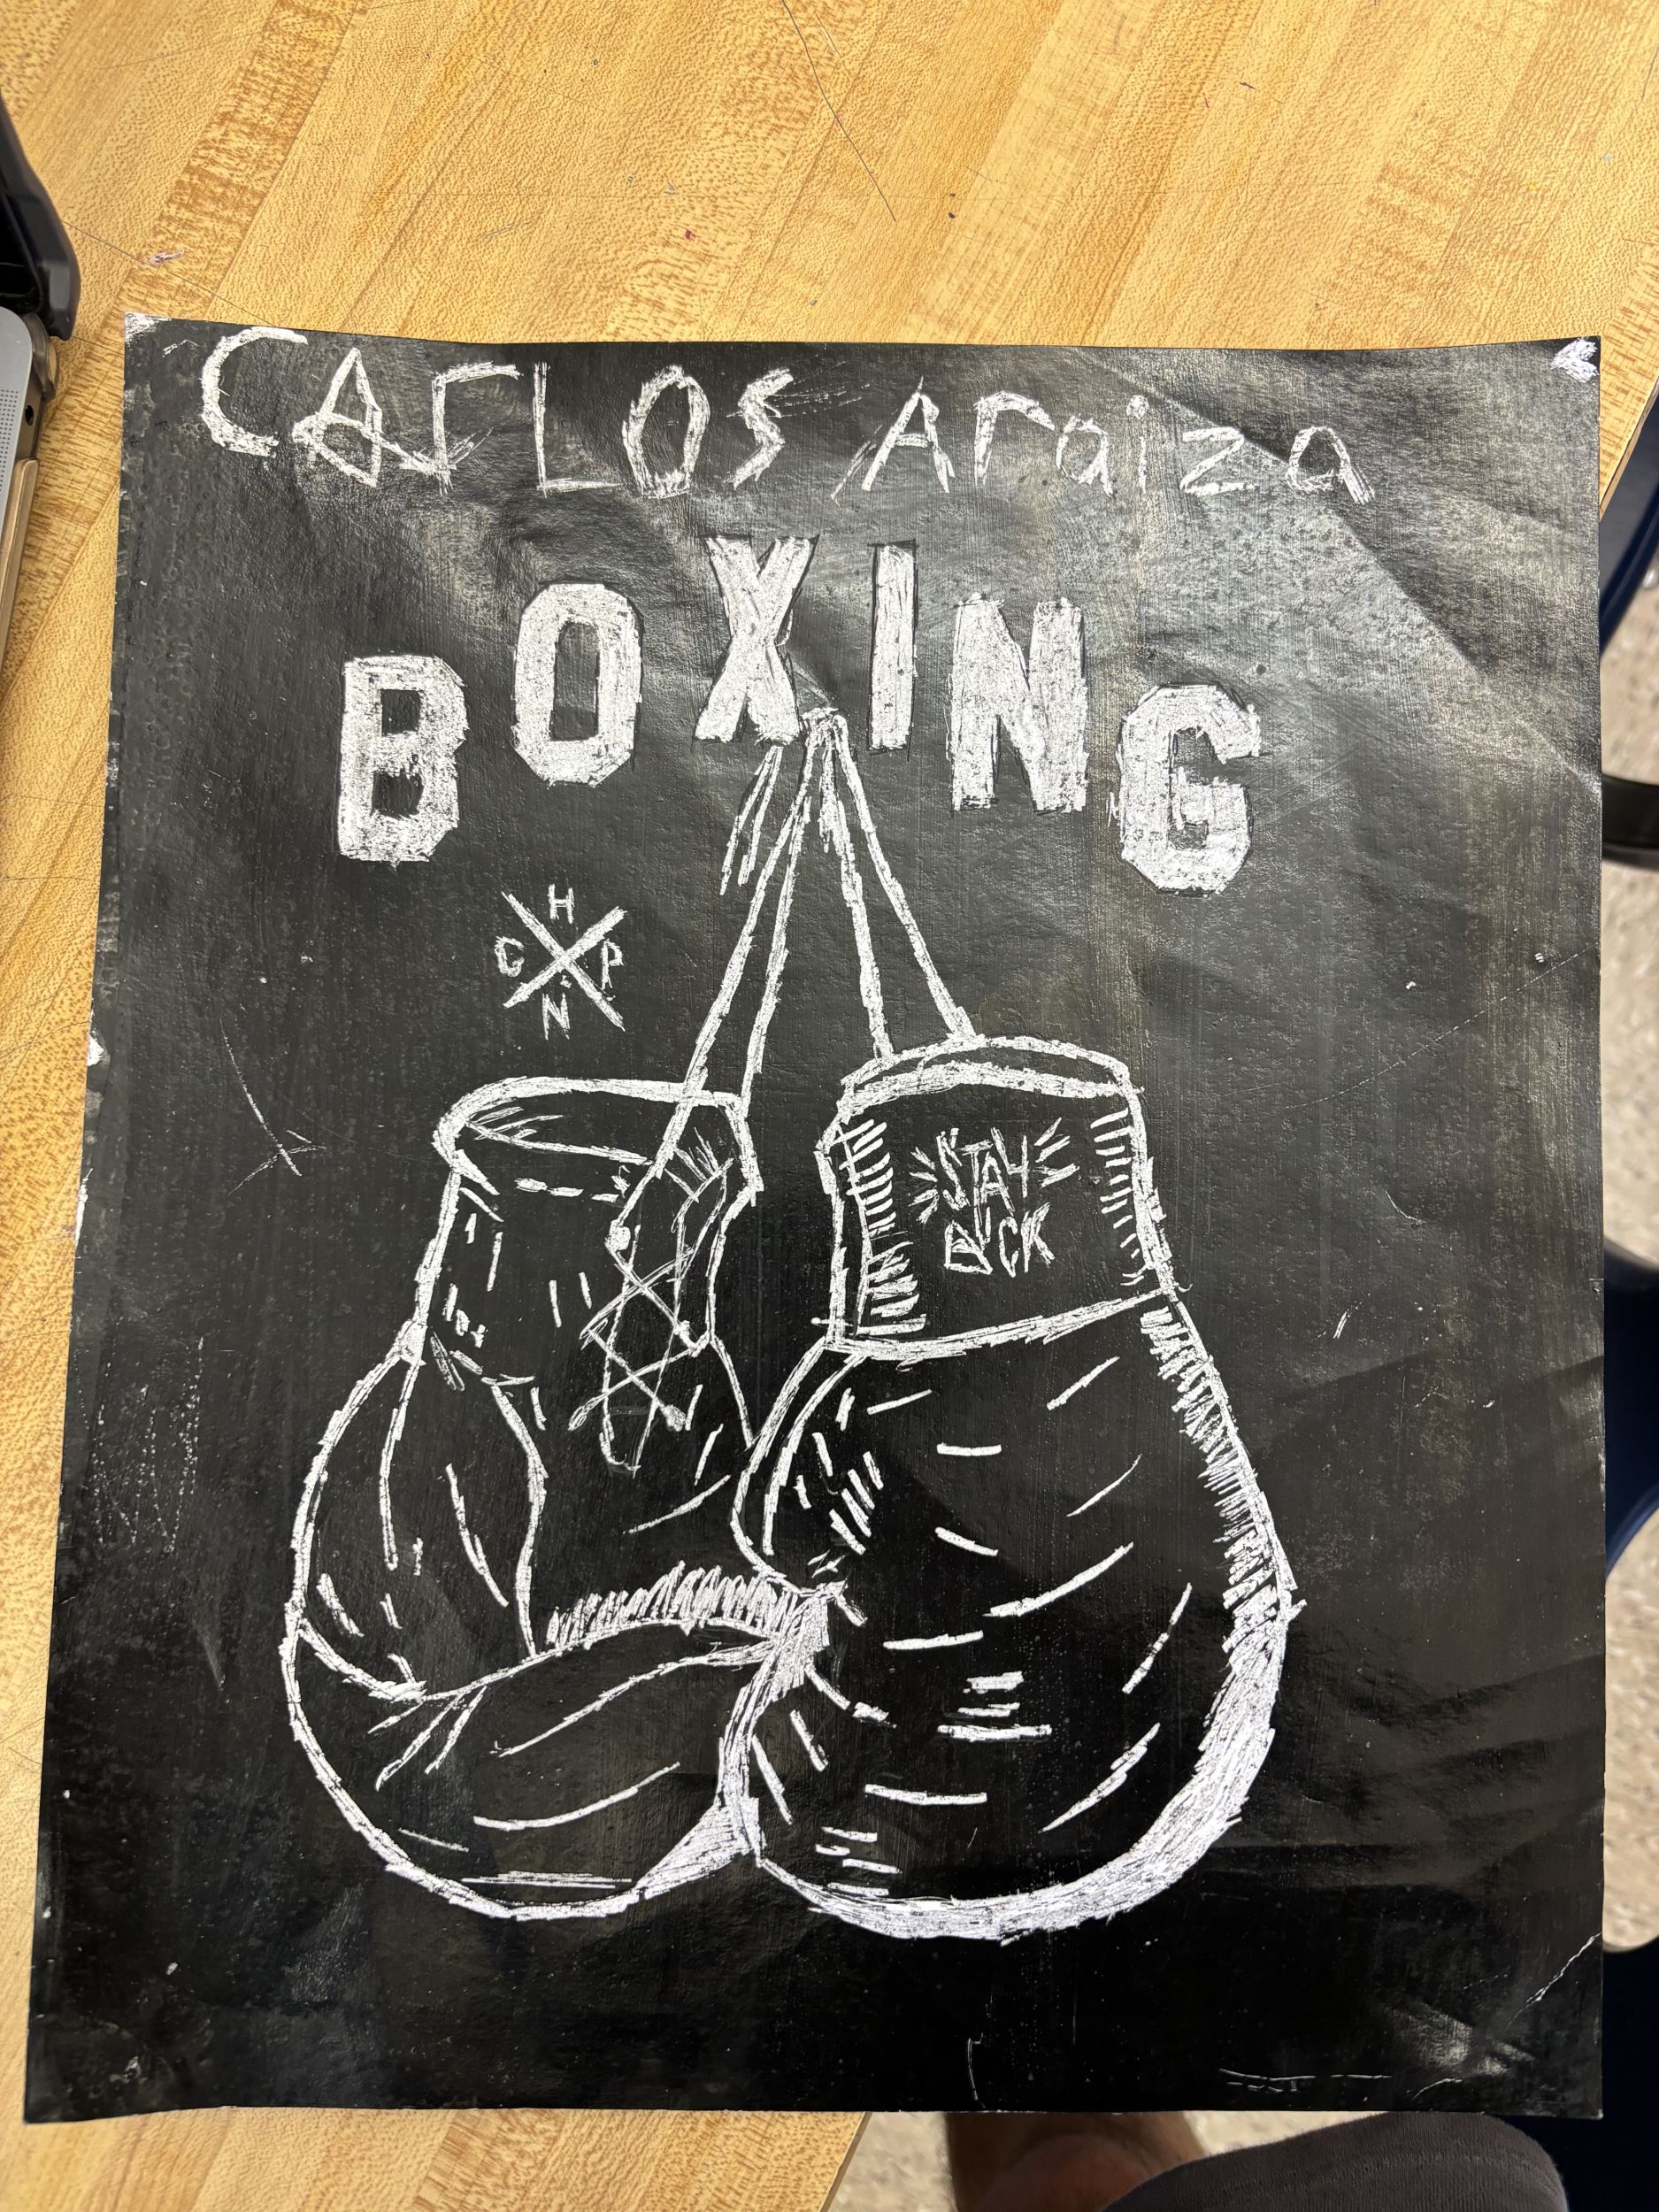 CArLOS Araiza
BOXING
H
G P
N
STAY
BUCK